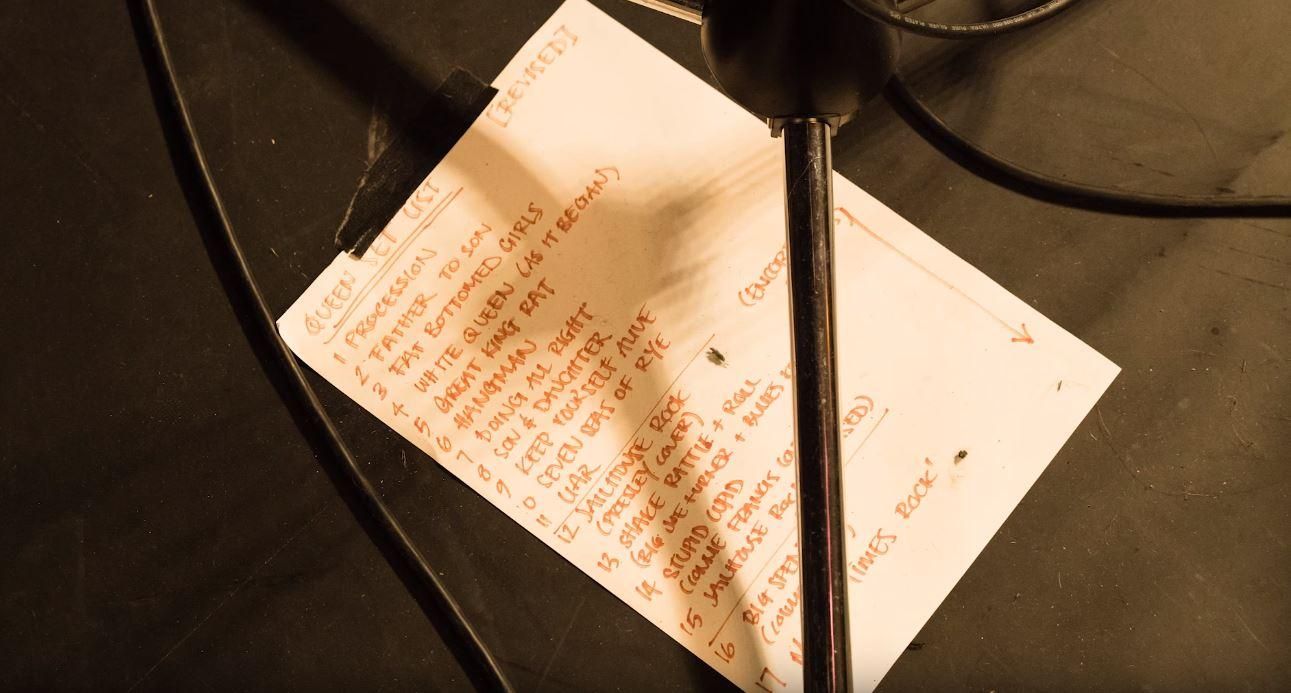 [REVISED]
QUEEN SET LIST
1 PROCESSION
2 FATHER TO SON
3 FAT BOTTOMED GIRLS
4 WHITE QUEEN (AS IT BEGAN)
5 GREAT KING RAT
6 HANGMAN
7 DOING ALL RIGHT
8 SON & DAUGHTER
9 KEEP YOURSELF ALIVE
10 SEVEN SEAS OF RYE
11 LIAR
(ENCOR
12 JAILHOUSE ROCK
(PRESLEY COVER)
13 SHAKE RATTLE + ROLL
(BIG JOE TURNER +
14 STUPID CUPID
(CONNIE FRANCIS
15 JAILHOUSE
16 BIG
17
TIMES ROCK'